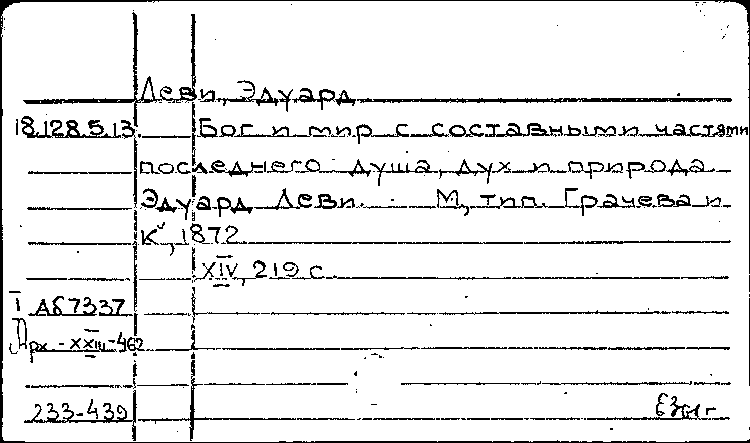 Леви, Эдуард
18.128.5.13. Бог и мир с составными частями
последнего душа, дух и природа.
Эдуард Леви. М, тип. Грачева и
К°, 1872
XIV, 219 с.
I Аб 7337
Арх. - XXIII-462
233-439